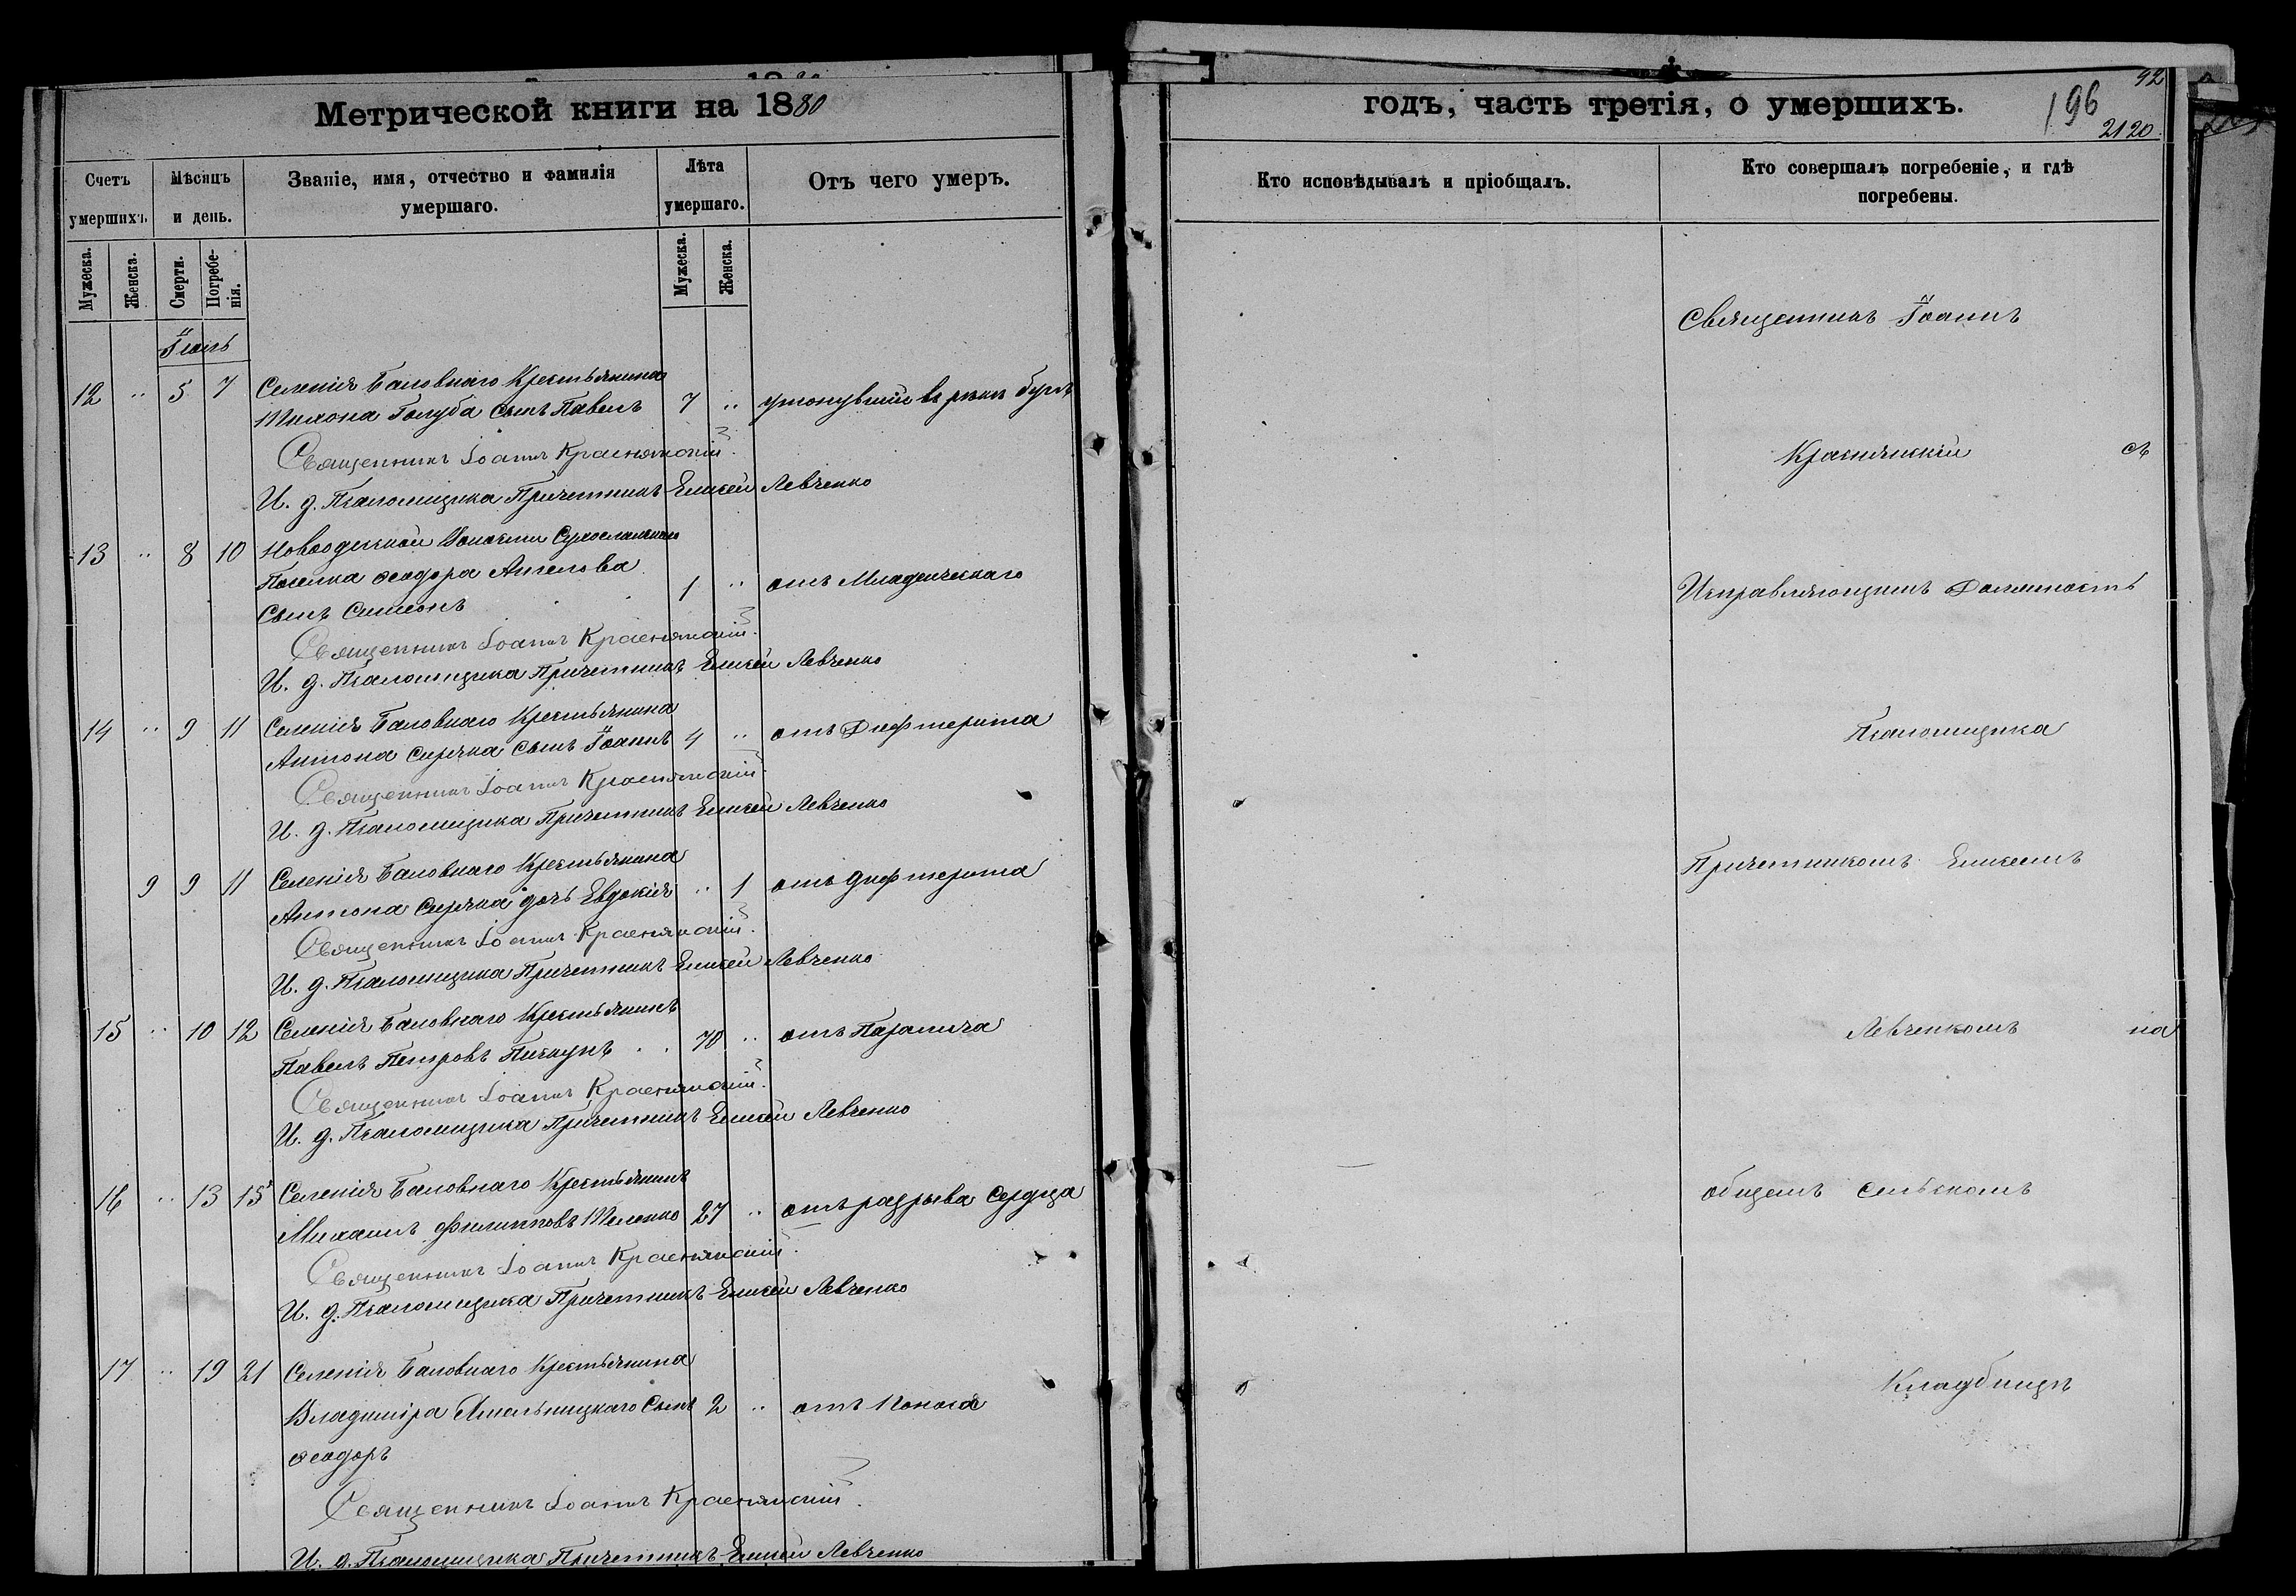 Метрической книги на 1880
Счетъ умершихъ.
Мѣсяцъ и день.
Званіе, имя, отчество и фамилія умершаго.
Лѣта умершаго.
Отъ чего умеръ.
Мужеска.
Женска.
Смерти.
Погребенія.
Мужеска.
Женска.
Іюль
12 " 5 7 Селенія Баловнаго Крестьянина
Тихона Голуба сынъ Павелъ 7 " утонувший въ рѣкѣ Бугѣ
Священникъ Іоаннъ Краснянскій.
И. д. Псаломщика Причетникъ Елисей Левченко
13 " 8 10 Новоодеской Волости
Поселка Феодора Ангелова
Сынъ Симеонъ 1 " отъ Младенческаго
Священникъ Іоаннъ Краснянскій.
И. д. Псаломщика Причетникъ Елисей Левченко
14 " 9 11 Селенія Баловнаго Крестьянина
Антона Сиряка сынъ Іоаннъ 4 " отъ Дифтерита
Священникъ Іоаннъ Краснянскій.
И. д. Псаломщика Причетникъ Елисей Левченко
9 9 11 Селенія Баловнаго Крестьянина
Антона Сиряка дочь Евдокія " 1 отъ дифтерита
Священникъ Іоаннъ Краснянскій.
И. д. Псаломщика Причетникъ Елисей Левченко
15 " 10 12 Селенія Баловнаго Крестьянинъ
Павелъ Петровъ 70 " отъ Паралича
Священникъ Іоаннъ Краснянскій.
И. д. Псаломщика Причетникъ Елисей Левченко
16 " 13 15 Селенія Баловнаго Крестьянинъ
Михаилъ Филипповъ 27 " отъ разрыва сердца
Священникъ Іоаннъ Краснянскій.
И. д. Псаломщика Причетникъ Елисей Левченко
17 " 19 21 Селенія Баловнаго Крестьянина
Владиміра Сынъ 2 " отъ Поноса
Феодоръ
Священникъ Іоаннъ Краснянскій.
И. д. Псаломщика Причетникъ Елисей Левченко
годъ, часть третія, о умершихъ.
92
196
2120.
Кто исповѣдывалъ и пріобщалъ.
Кто совершалъ погребеніе, и гдѣ
погребены.
Священникъ Іоаннъ
Краснянскій съ
Исправляющимъ Должность
Псаломщика
Причетникомъ Елисеемъ
Левченкомъ на
общемъ сельскомъ
Кладбищѣ